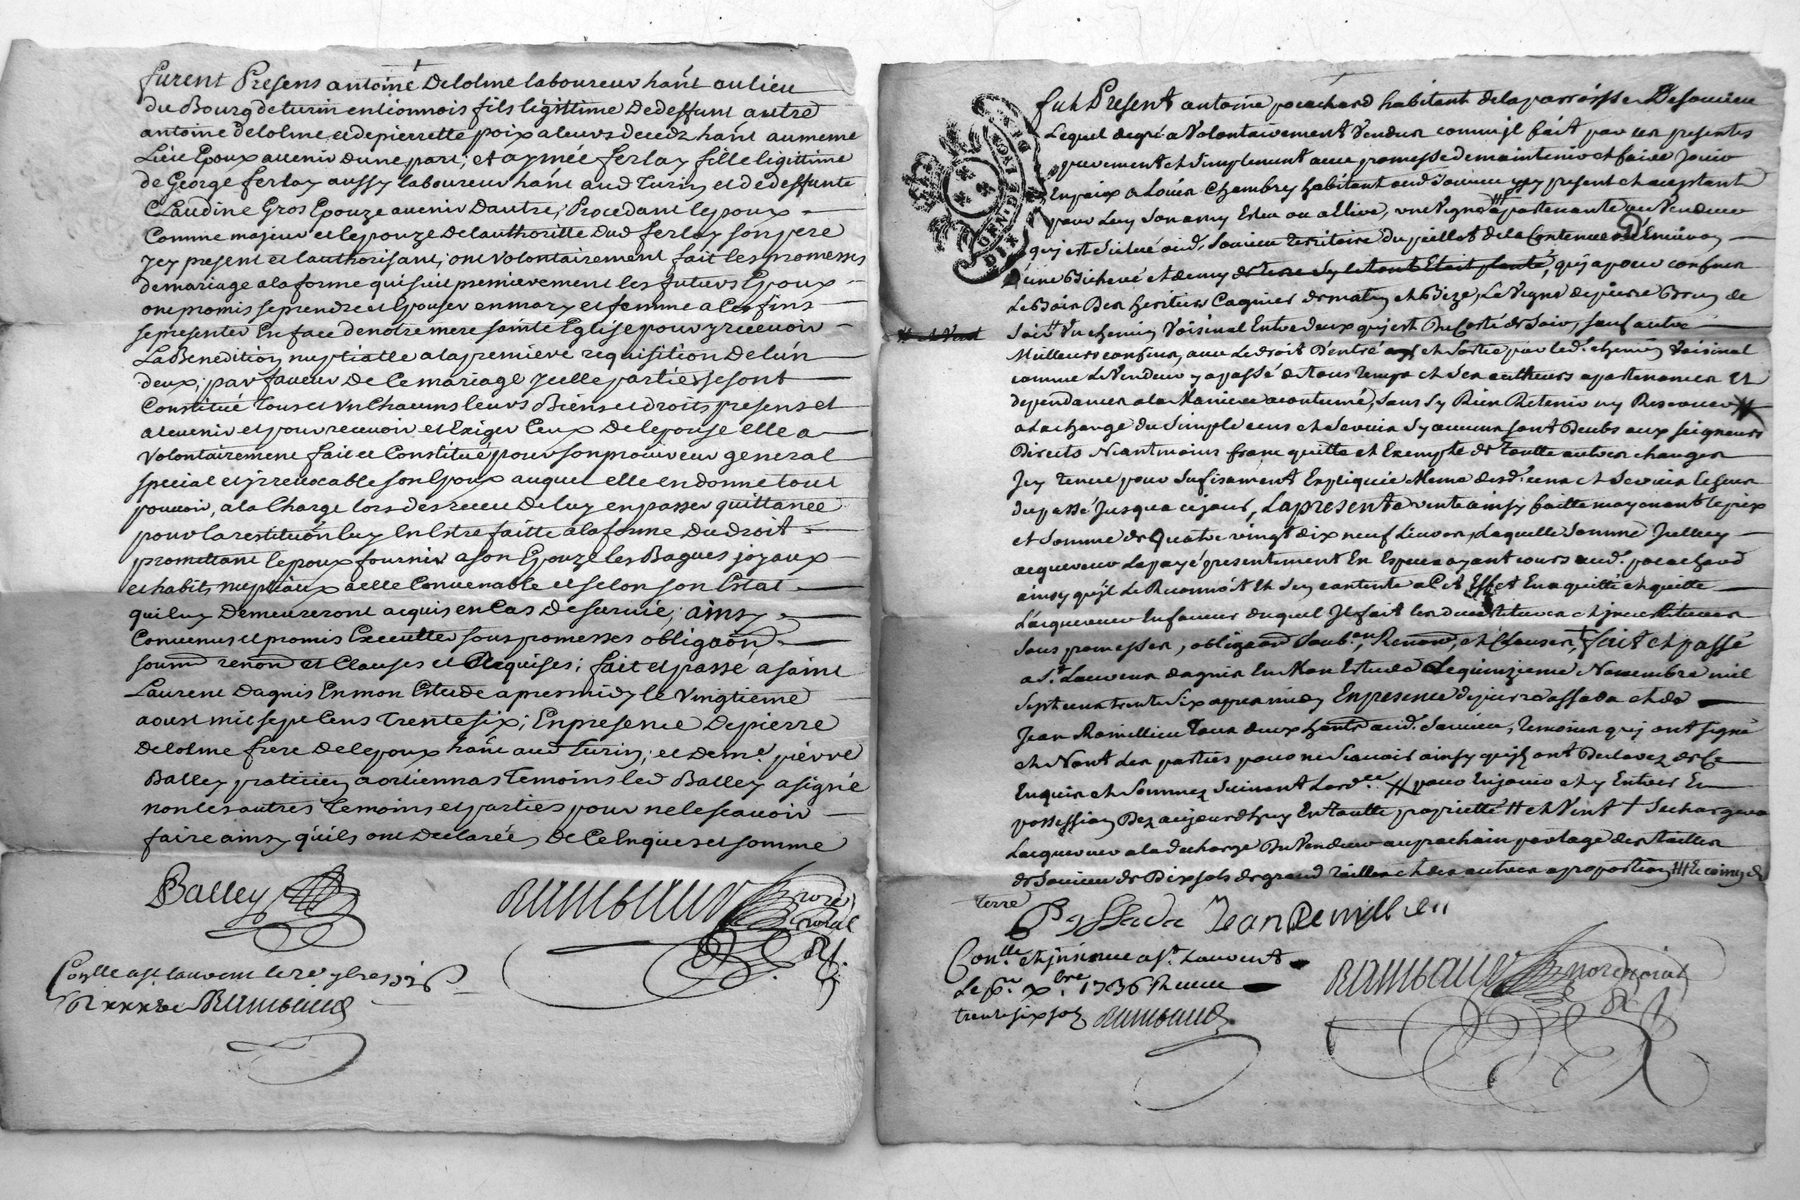 furent Presens antoine Delolme laboureur hant au lieu
du Bourg de turin en lionnois fils legittime De deffunt autre
antoine delolme et de pierrette poix a leurs decedz hant au meme
Lieu Epoux avenir dune part; et aymée ferlay fille legittime
de George ferlay aussy laboureur hant aud Turin et de deffunte
Claudine Gros Epouze avenir Dautre, Procedant lepoux
Comme majeur et lepouze De lauthoritte Dud ferlay son pere
Jcy present et lauthorisant, ont volontairement fait les promesses
de mariage a la forme qui suit premierement les futurs Epoux
ont promis se prendre et Epouser en mary et femme a Ces fins
se presenter En face de notre mere sainte Eglise pour y recevoir
La Benedition nuptialle a la premiere requisition De lun
deux; par faveur De Ce mariage Jcelle parties se sont
Constitué tous et Vn Chacuns leurs Biens et droits presens et
avenir et pour recevoir et Exiger Ceux De lepouse elle a
volontairement fait et Constitué pour son procureur general
special et jrrevocable son Epoux auquel elle en donne tout
pouvoir, a la Charge lors des receu De luy en passer quittance
pour la restitution luy En Estre faitte a la forme Du droit
promettant lepoux fournir a son Epouze les Bagues joyaux
et habits nuptiaux a elle Convenable et selon son Estat
qui luy Demeureront acquis en Cas De survie; ainsy
Convenus et promis Executter sous promesses obligaon
soumn renon et Clauses et Requises; fait et passé a saint
Laurent Dagnis En mon Estude apres midy le Vingtieme
aoust mil sept Cens Trente six; En presence De pierre
Delolme frere De lepoux hant aud Turin; et De me pierre
Balley praticien a ortiennas Temoins led Balley a signé
non les autres Temoins et parties pour ne le scavoir
faire ainsy quils ont Declarée De Ce Enquis et sommé
Balley
Rambaud nore royal
Conlle a st laurent le
Rambaud
fut Present antoine pocachard habitant de la parroisse De Soucieu
Lequel de gré a Volontairement Vendu comme jl fait par ces presentes
purement et simplement avec promesse de maintenir et faire jouir
En paix a Louis Chambry habitant aud Soucieu jcy present et acceptant
pour Luy Son amy Esleu ou a Elire, une Vigne apartenante au Vendeur
qui est Situé aud. Soucieu territoire du peillot de la Contenue
d'une Bicherée et demy de terre qui a pour confins
Le Bois Des heritiers Cagnier de matin et Bize, La Vigne de pierre Brun de
Soir Vn chemin Voisinal Entre deux qui est Du Costé de Soir, sauf autre
Meilleurs confins, avec Le droit D'entré et Sortie par led. chemin Voisinal
comme Le Vendeur y a passé de tous temps et Ses autheurs apartenances et
dependances a la Maniere acoutumé, sans Sy Rien Retenir ny Reserver
a La charge du Simple cens et Servis Sy aucuns sont Deubs aux seigneurs
Directs Neantmoins franc quitte et Exempte de toutte autres charges
du passé Jusqua ce jour, La presente vente ainsy faitte moyenant le prix
et Somme de Quatre vingt dix neuf Livres, Laquelle Somme
acquereur La payé presentement En Especes ayant cours aud. pocachard
ainsy qu'jl Le Reconnoit Et Sen contente a Cet Effet En a quitté et quitte
L'acquereur En faveur duquel Jl fait
Sous promesses, obligaon Soubmn, Renonon, et Clauses, fait et passé
a St. Laurens dagnis En Mon Estude Le quinzieme Novembre mil
Sept cens trente Six apres midy En presence de pierre assada et de
Jean Ramillieu tous deux hants aud. Soucieu, temoins qui ont signé
et Nont Les parties pour ne Scavoir ainsy qu'jls ont Declarez de Ce
Enquis et Sommez Suivant Lordce // pour En jouir et y Entrer En
possession Dez aujourdhuy En toutte proprietté # et Vent + Se chargera
Lacquereur a la decharge Du Vendeur au prochain partage des tailles
de Soucieu de Dix sols de grand taille et des autres a proportion
terre
# et Vent
P assada Jean Remillieu
Conlle et jnsinué a St. Laurent
Le xbre 1736 Receu
trente six sols Rambaud
Rambaud nore royal
GEN. DE LYON